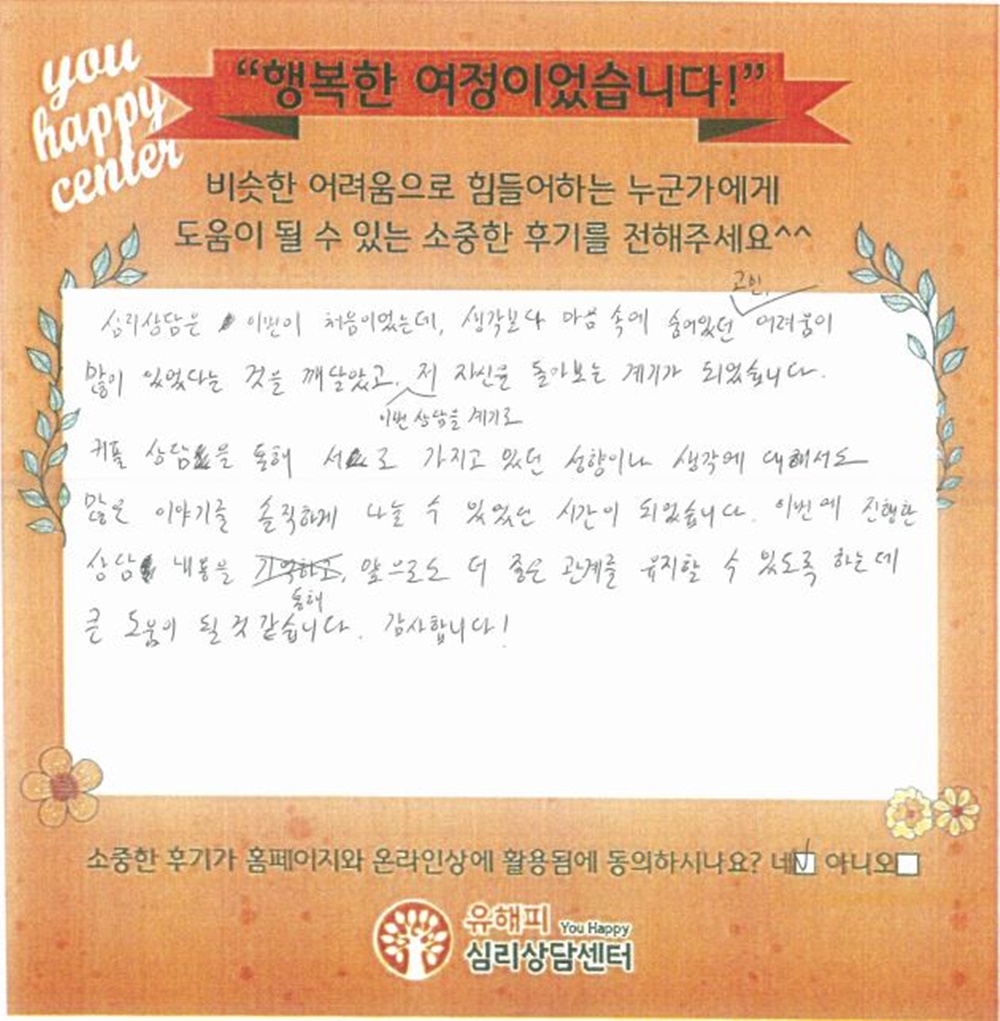 you
happy
center
“행복한 여정이었습니다!”
비슷한 어려움으로 힘들어하는 누군가에게
도움이 될 수 있는 소중한 후기를 전해주세요^^
고민,
심리상담은 이번이 처음이었는데, 생각보다 마음 속에 숨어있던 어려움이
많이 있었다는 것을 깨달았고, 저 자신을 돌아보는 계기가 되었습니다.
이번 상담을 계기로
커플 상담을 통해 서로 가지고 있던 성향이나 생각에 대해서도
많은 이야기를 솔직하게 나눌 수 있었던 시간이 되었습니다. 이번에 진행한
상담 내용을 기억하고, 앞으로도 더 좋은 관계를 유지할 수 있도록 하는데
통해
큰 도움이 될 것 같습니다. 감사합니다!
소중한 후기가 홈페이지와 온라인상에 활용됨에 동의하시나요? 네 아니오
유해피 You Happy
심리상담센터